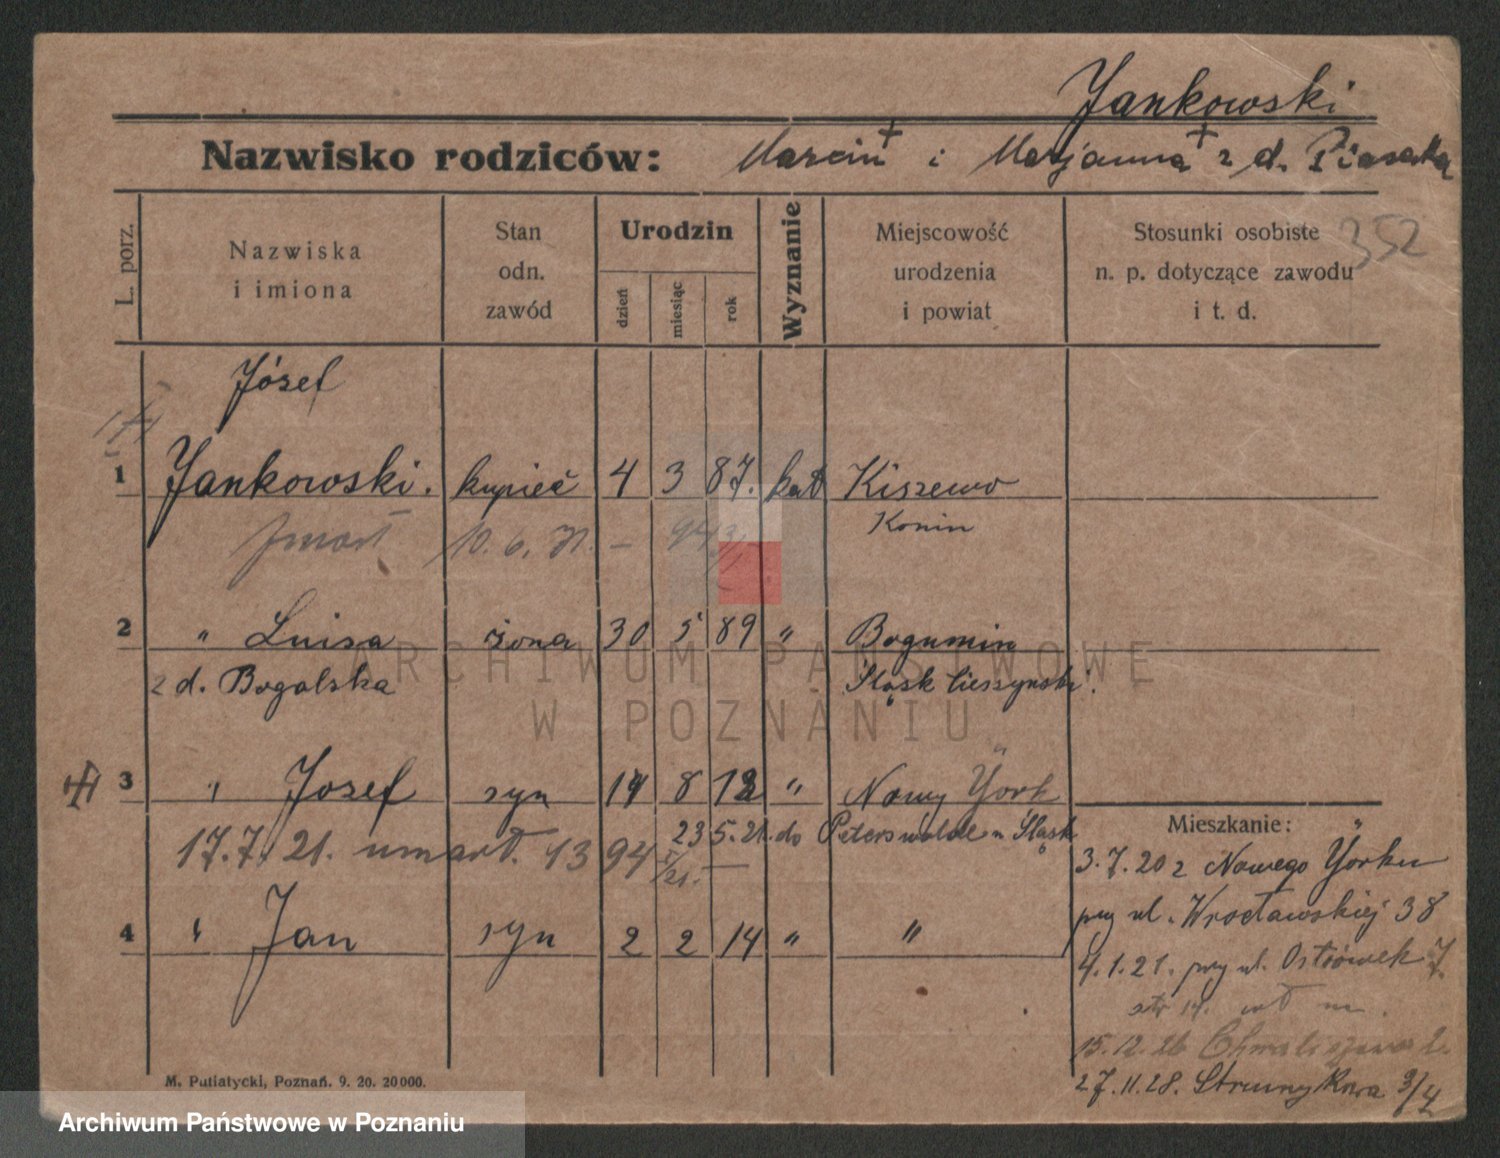 Jankowski
Nazwisko rodziców: Marcin + i Marjanna + z d. Piasecka
352
L. porz.
Nazwiska
i imiona
Stan
odn.
zawód
Urodzin
dzień
miesiąc
rok
Wyznanie
Miejscowość
urodzenia
i powiat
Stosunki osobiste
n. p. dotyczące zawodu
i t. d.
Józef
1 Jankowski. kupiec 4 3 87. kat Kiszewo
Konin
zmarł 10. 6. 31. – 943/
2 " Luisa żona 30 5 89 " Bogumin
z d. Bogalska Śląsk Cieszyński.
3 " Josef syn 14 8 12 " Nowy York
23 5. 21. do Peterswalde n Śląsk
17. 7. 21. umarł. 1394
4 " Jan syn 2 2 14 " "
Mieszkanie:
3. 7. 20 z Nowego Yorku
przy ul. Wrocławskiej 38
4. 1. 21. przy ul. Ostrówek 7.
15. 12. 26 Chwaliszewo
27. 11. 28. Strumykowa 3/4
M. Putiatycki, Poznań. 9. 20. 20000.
ARCHIWUM PAŃSTWOWE
W POZNANIU
Archiwum Państwowe w Poznaniu